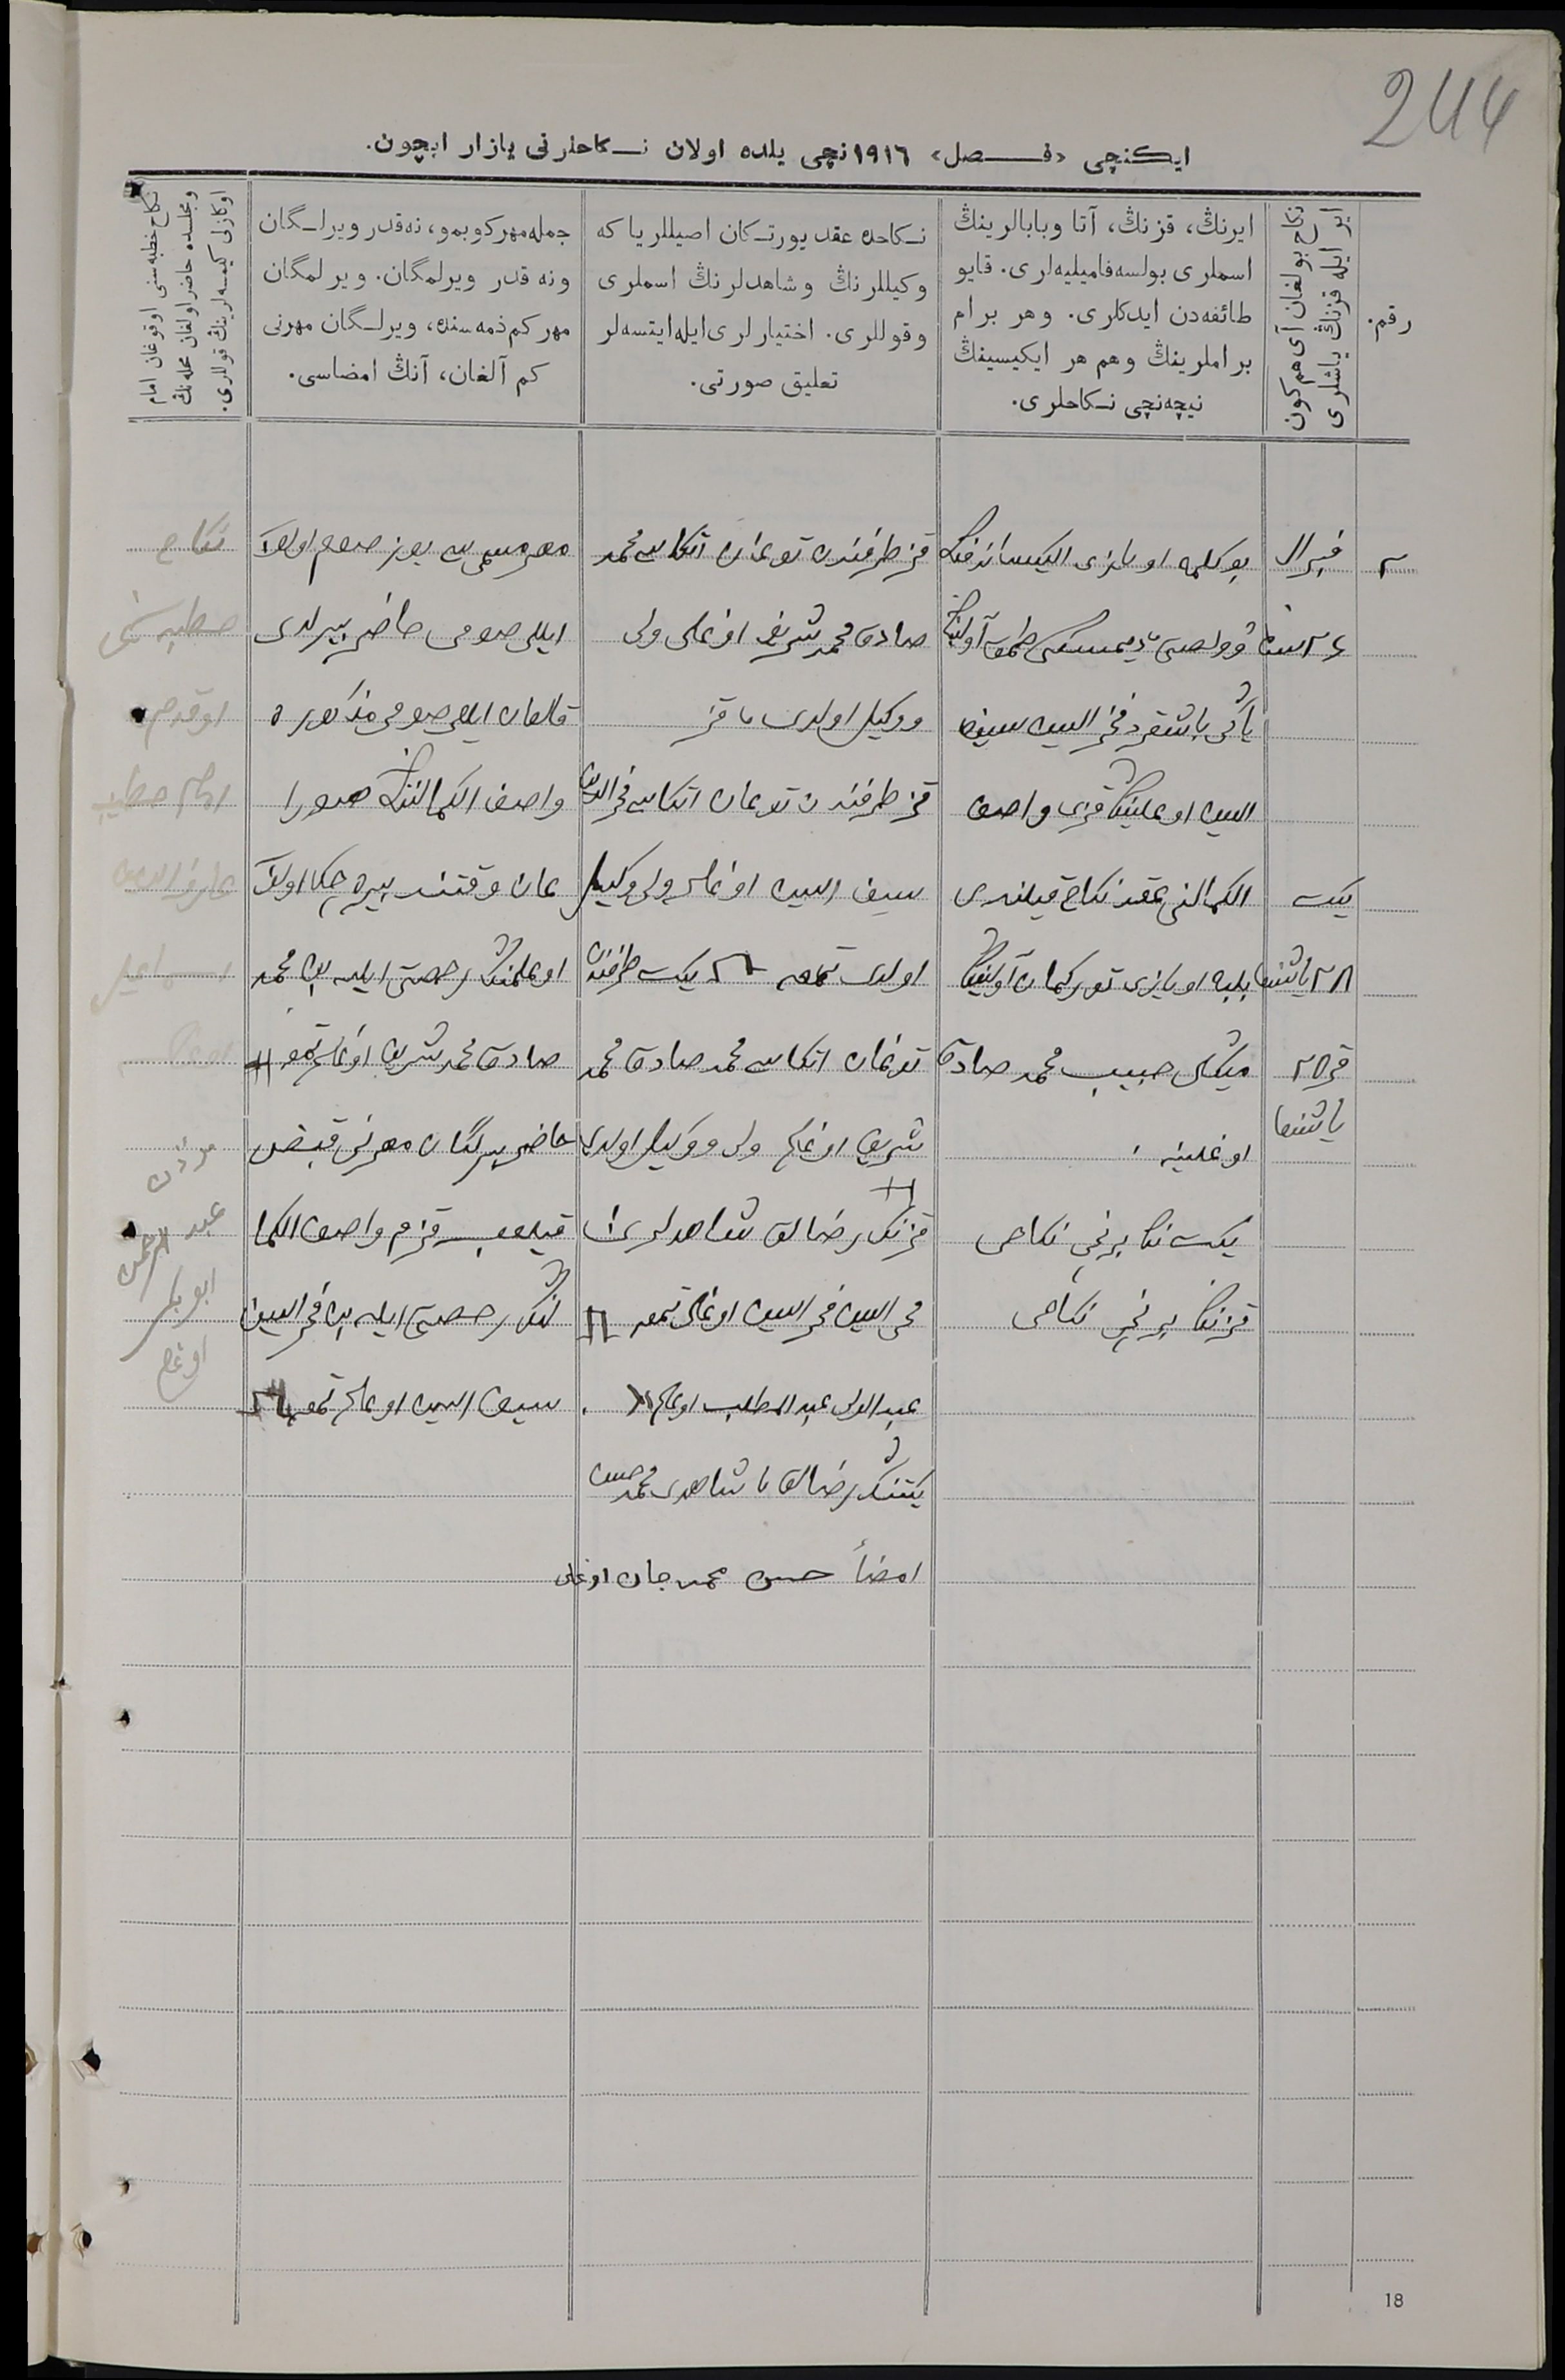 244
ایکنچی «فصل» ۱۹۱٦نچی یلده اولان نکاحلرنی یازار ایچون.
رقم.
نکاح بولغان آی هم کون
ایر ایله قزنڭ یاشلری
ایرنڭ، قزنڭ، آتا وبابالرینڭ
اسملری بولسه فامیلیه‌لری. قایو
طائفه‌دن ایدکلری. وهر برام
براملرینڭ وهم هر ایکیسینڭ
نیچه‌نچی نکاحلری.
نکاحده عقد یورتکان اصیللر یا که
وکیللرنڭ وشاهدلرنڭ اسملری
وقوللری. اختیارلری ایله ایتسه‌لر
تعلیق صورتی.
جمله مهر کوبمو، نه‌قدر ویرلگان
ونه قدر ویرلمگان. ویرلمگان
مهر کم ذمه‌سنده، ویرلگان مهرنی
کم آلغان، آنڭ امضاسی.
نکاح خطبه‌سنی اوقوغان امام
ومجلسده حاضر اولغان محله‌نڭ
اوکازلی کیمسه‌لرینڭ قوللری.
۲
فبرال
یکت
۲۸ یاشنده
قز ۲۵
یاشنده
بوکلمه اویازی الیکساندرفسکه
یاڭی باشقرد فخر الدین سیف
الدین اوغلینڭ قزی واصف
الکمالنی عقد نکاح قیلندی
بلبه اویازی تورکمان آولینڭ
میکشی حبیب محمد صادق
اوغلینه.
یکت‌نڭ برنچی نکاحی
قزنڭ برنچی نکاحی
قز طرفندن توغان اتکاسی محمد
صادق محمد شریف اوغلی ولی
ووکیل اولدی
قز طرفندن توغان اتکاسی فخر الدین
سیف الدین اوغلی ولی وکیل
اولدی تمغه یکت طرفندن
توغان اتکاسی محمد صادق محمد
شریف اوغلی ولی ووکیل اولدی
قزنڭ رضالق شاهدلری
محی الدین فخر الدین اوغلی تمغه
عبد الولی عبد المطلب اوغلی
یکتنڭ رضالق شاهدی محمد حسن
امضأ حسن محمد جان اوغلی
مهر مسمی سی یوز صوم اولوب
ایللی صومی حاضر بیرلدی
قالغان ایللی صومی مذکوره
واصف الکمالنڭ صورا
غان وقتنده بیره‌چک اولوب
اوغلمنڭ رخصتی ایله بن محمد
صادق محمد شریف اوغلی تمغه
حاضر بیرلگان مهرنی قبض
قیلوب قزم واصف الکما
لنڭ رخصتی ایله بن فخر الدین
سیف الدین اوغلی تمغه
نکاح
خطبه‌سنی
اوقدم
امام خطیب
مؤذن
عبد الرحمن
ابو بکر
اوغلی
18